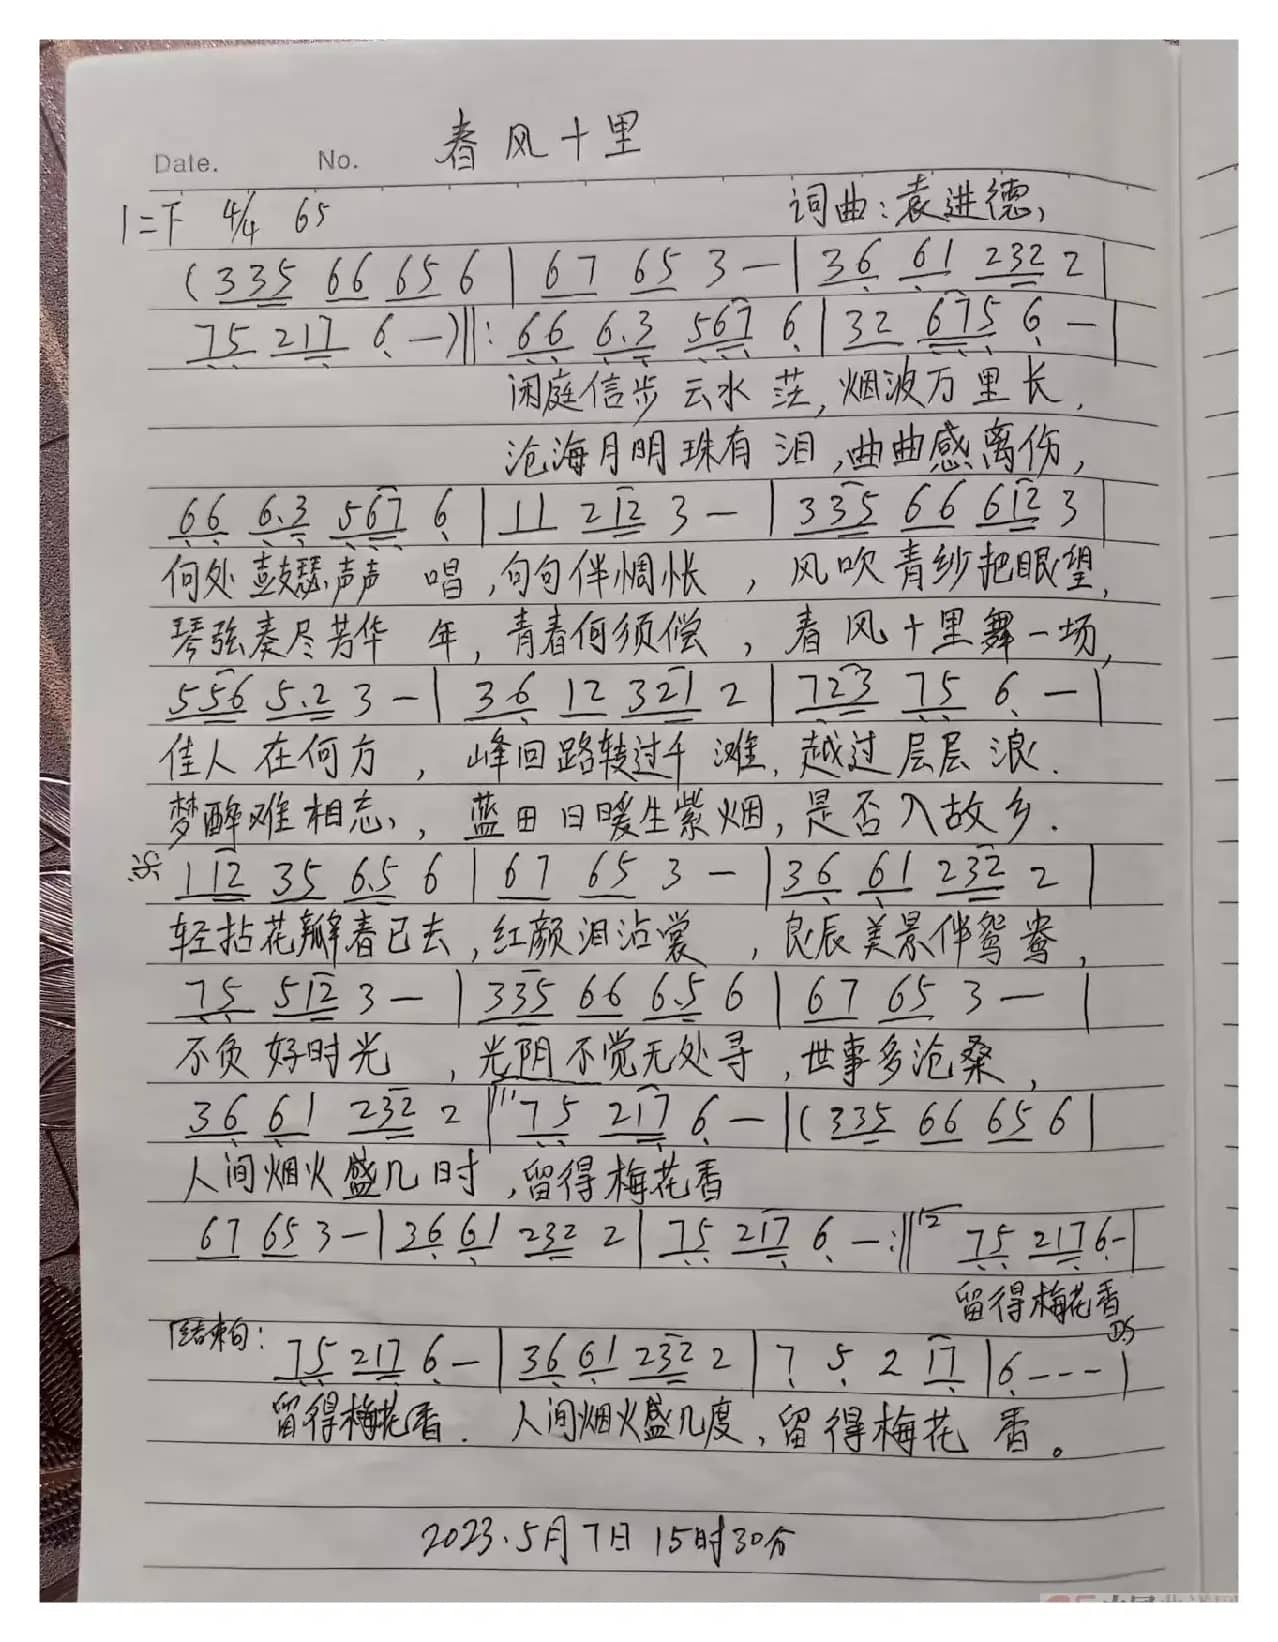 春风十里
Date. No.
1=F 4/4 65 词曲:袁进德
(335 66 65 6 | 67 65 3 — | 36 61 232 2 |
75 217 6 —)‖: 66 6.3 567 6 | 32 675 6 — |
闲庭信步云水茫,烟波万里长,
沧海月明珠有泪,曲曲感离伤,
66 6.3 567 6 | 11 212 3 — | 335 66 612 3 |
何处鼓瑟声声唱,句句伴惆怅,风吹青纱把眼望,
琴弦奏尽芳华年,青春何须偿,春风十里舞一场,
556 5.2 3 — | 36 12 321 2 | 723 75 6 — |
佳人在何方,峰回路转过千滩,越过层层浪.
梦醉难相忘,蓝田日暖生紫烟,是否入故乡.
112 35 6.5 6 | 67 65 3 — | 36 61 232 2 |
轻拈花瓣春已去,红颜泪沾裳,良辰美景伴鸳鸯,
75 512 3 — | 335 66 6.5 6 | 67 65 3 — |
不负好时光,光阴不觉无处寻,世事多沧桑,
36 61 232 2 | 75 217 6 — | (335 66 65 6 |
人间烟火盛几时,留得梅花香
67 65 3 — | 36 61 232 2 | 75 217 6 — :‖ 75 217 6 — |
留得梅花香
D.S
结束句: 75 217 6 — | 36 61 232 2 | 7 5 2 17 | 6 - - - |
留得梅花香. 人间烟火盛几度,留得梅花香。
2023.5月7日 15时30分